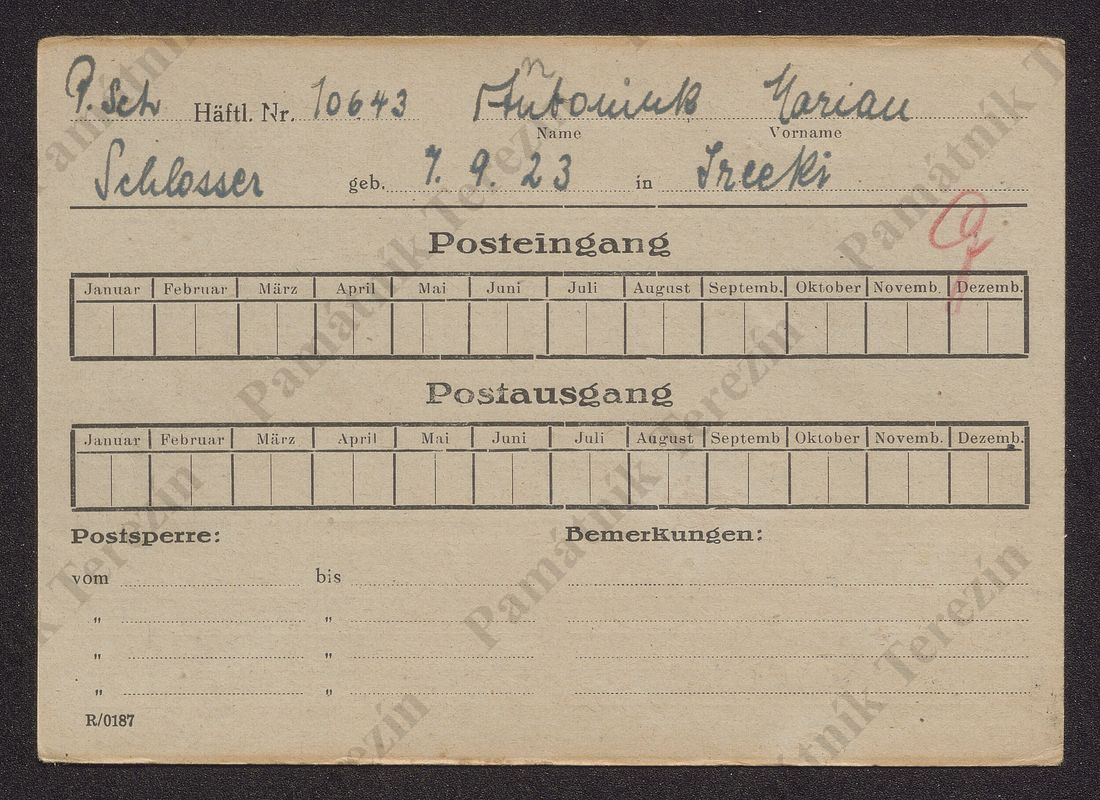 P. Sch Häftl. Nr. 10643 Antoniuk Marian
Name Vorname
Schlosser geb. 7. 9. 23 in
Posteingang
Januar Februar März April Mai Juni Juli August Septemb. Oktober Novemb. Dezemb.
Postausgang
Januar Februar März April Mai Juni Juli August Septemb Oktober Novemb. Dezemb.
Postsperre: Bemerkungen:
vom bis
" "
" "
" "
R/0187
Památník Terezín